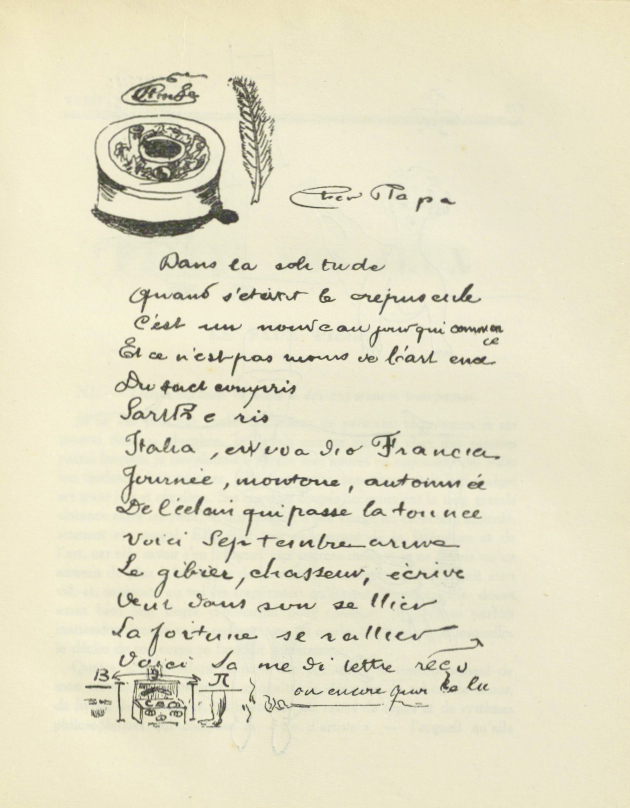 Cher Papa
Dans la solitude
Quand s'éteint le crépuscule
C'est un nouveau jour qui commen
ce
Et ce n'est pas moins de l'art
Du tact compris
Italia, evviva dio Francia
Journée, montone, automnée
De l'éclair qui passe la tournée
Voici Septembre arrive
Le gibier, chasseur, écrive
Veut dans son se llier
La fortune se rallier
Voici Sa me di lettre reçu
ou encore que lu
B π